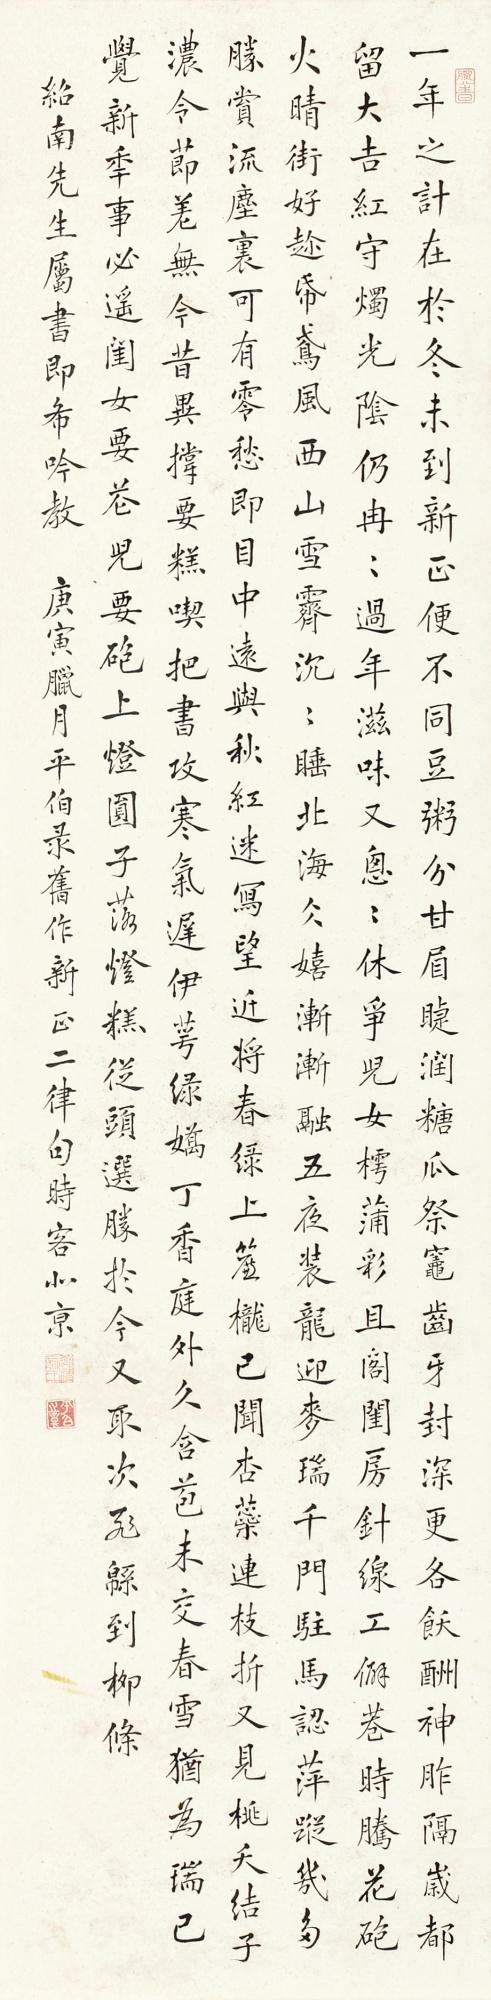 一年之計在於冬未到新正便不同豆粥分甘眉睫潤糖瓜祭竈齒牙封深更各飫酬神胙隔歲都
留大吉紅守燭光陰仍冉〻過年滋味又悤〻休爭兒女樗蒲彩且閣閨房針線工僻巷時騰花砲
火晴街好趁帋鳶風西山雪霽沉〻睡北海久嬉漸漸融五夜裝龍迎麥瑞千門駐馬認萍蹤幾多
勝賞流塵裏可有零愁即目中遠與秋紅迷寫望近將春綠上簾櫳已聞杏蘂連枝折又見桃夭結子
濃令節羌無今昔異撐要糕喫把書攻寒氣遲伊萼綠嬌丁香庭外久含苞未交春雪猶為瑞已
覺新年事必遥閨女要花兒要砲上燈圓子落燈糕從頭選勝於今又取次飛緜到柳條
紹南先生屬書即希吟教 庚寅臘月平伯录舊作新正二律句時客北京